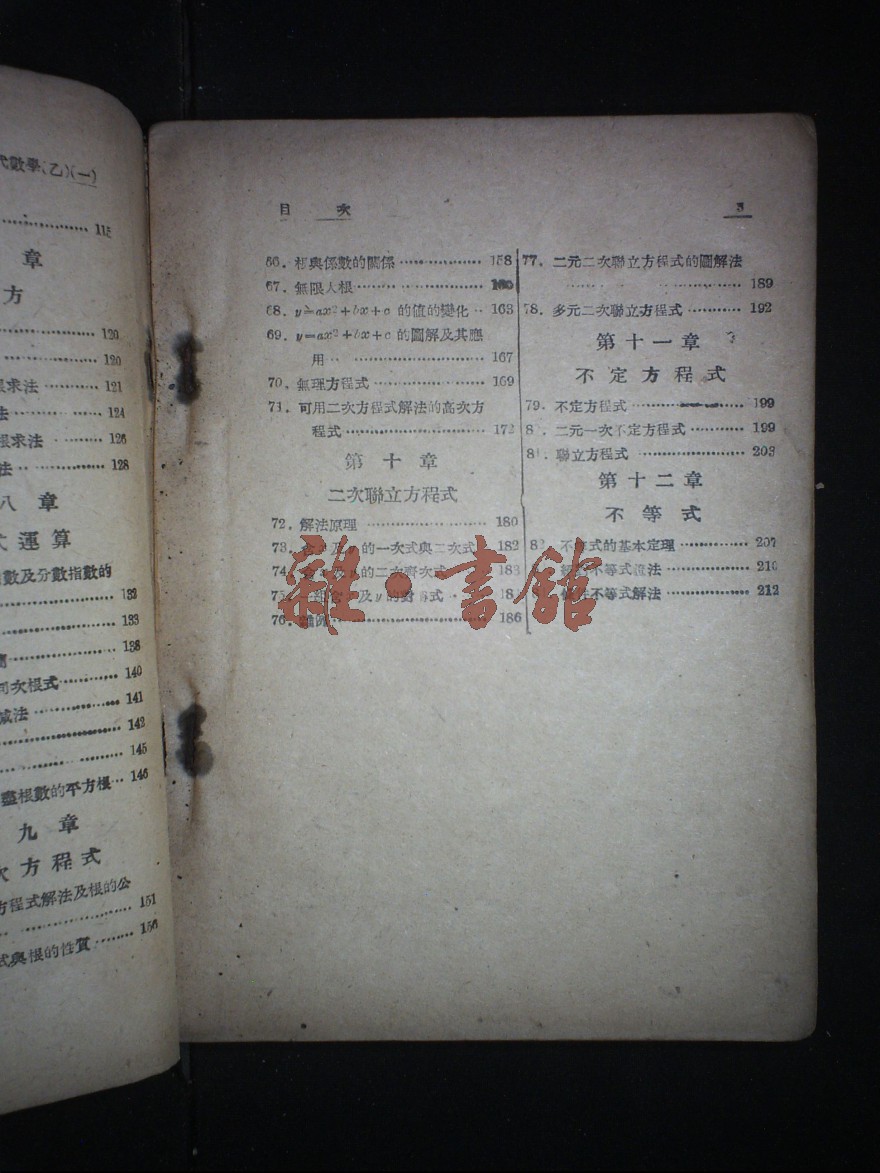 代數學(乙)(一)
115
章
方
120
120
根求法 121
法 124
根求法 126
法 128
八 章
式 運 算
指數及分數指數的
132
133
138
同次根式 140
減法 141
142
145
盡根數的平方根 146
九 章
次 方 程 式
方程式解法及根的公
151
式與根的性質 156
目 次
3
66. 根與係數的關係 158
67. 無限大根 160
68. y=ax²+bx+c 的值的變化 163
69. y=ax²+bx+c 的圖解及其應
用 167
70. 無理方程式 169
71. 可用二次方程式解法的高次方
程式 172
第 十 章
二次聯立方程式
72. 解法原理 180
73. 含 x 及 y 的一次式與二次式 182
74. 及 y 的二次齊次式 183
75. 及 y 的對等式 18
76. 186
77. 二元二次聯立方程式的圖解法
189
78. 多元二次聯立方程式 192
第 十 一 章
不 定 方 程 式
79. 不定方程式 199
8 . 二元一次不定方程式 199
8 . 聯立方程式 203
第 十 二 章
不 等 式
82. 不等式的基本定理 207
8 不等式證法 210
8 不等式解法 212
雜·書館